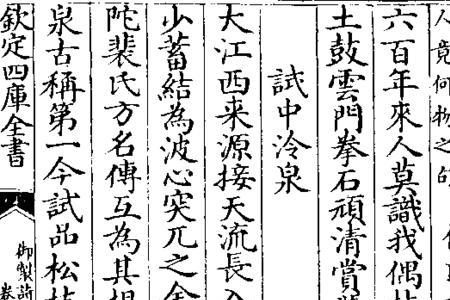 人竟何物之句
六百年來人莫識我偶
土鼓雲門拳石頑清賞
試中泠泉
大江西来源接天流長入
少蓄結為波心突兀之金
陀裴氏方名傳互為其
泉古稱第一今試品松枝
欽定四庫全書
御製詩
卷